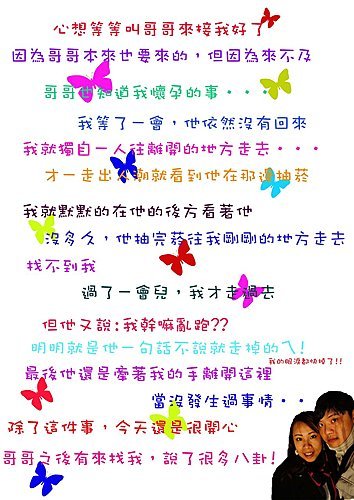 心想等等叫哥哥來接我好了
因為哥哥本來也要來的，但因為來不及
哥哥也知道我懷孕的事・・・
我等了一會，他依然沒有回來
我就獨自一人往離開的地方走去・・・
才一走出人潮就看到他在那邊抽菸
我就默默的在他的後方看著他
沒多久，他抽完菸往我剛剛的地方走去
找不到我
過了一會兒，我才走過去
但他又說:我幹嘛亂跑??
明明就是他一句話不說就走掉的ㄟ!
我的眼淚都快掉了!!
最後他還是牽著我的手離開這裡
當沒發生過事情・・
除了這件事，今天還是很開心
哥哥之後有來找我，說了很多八卦!